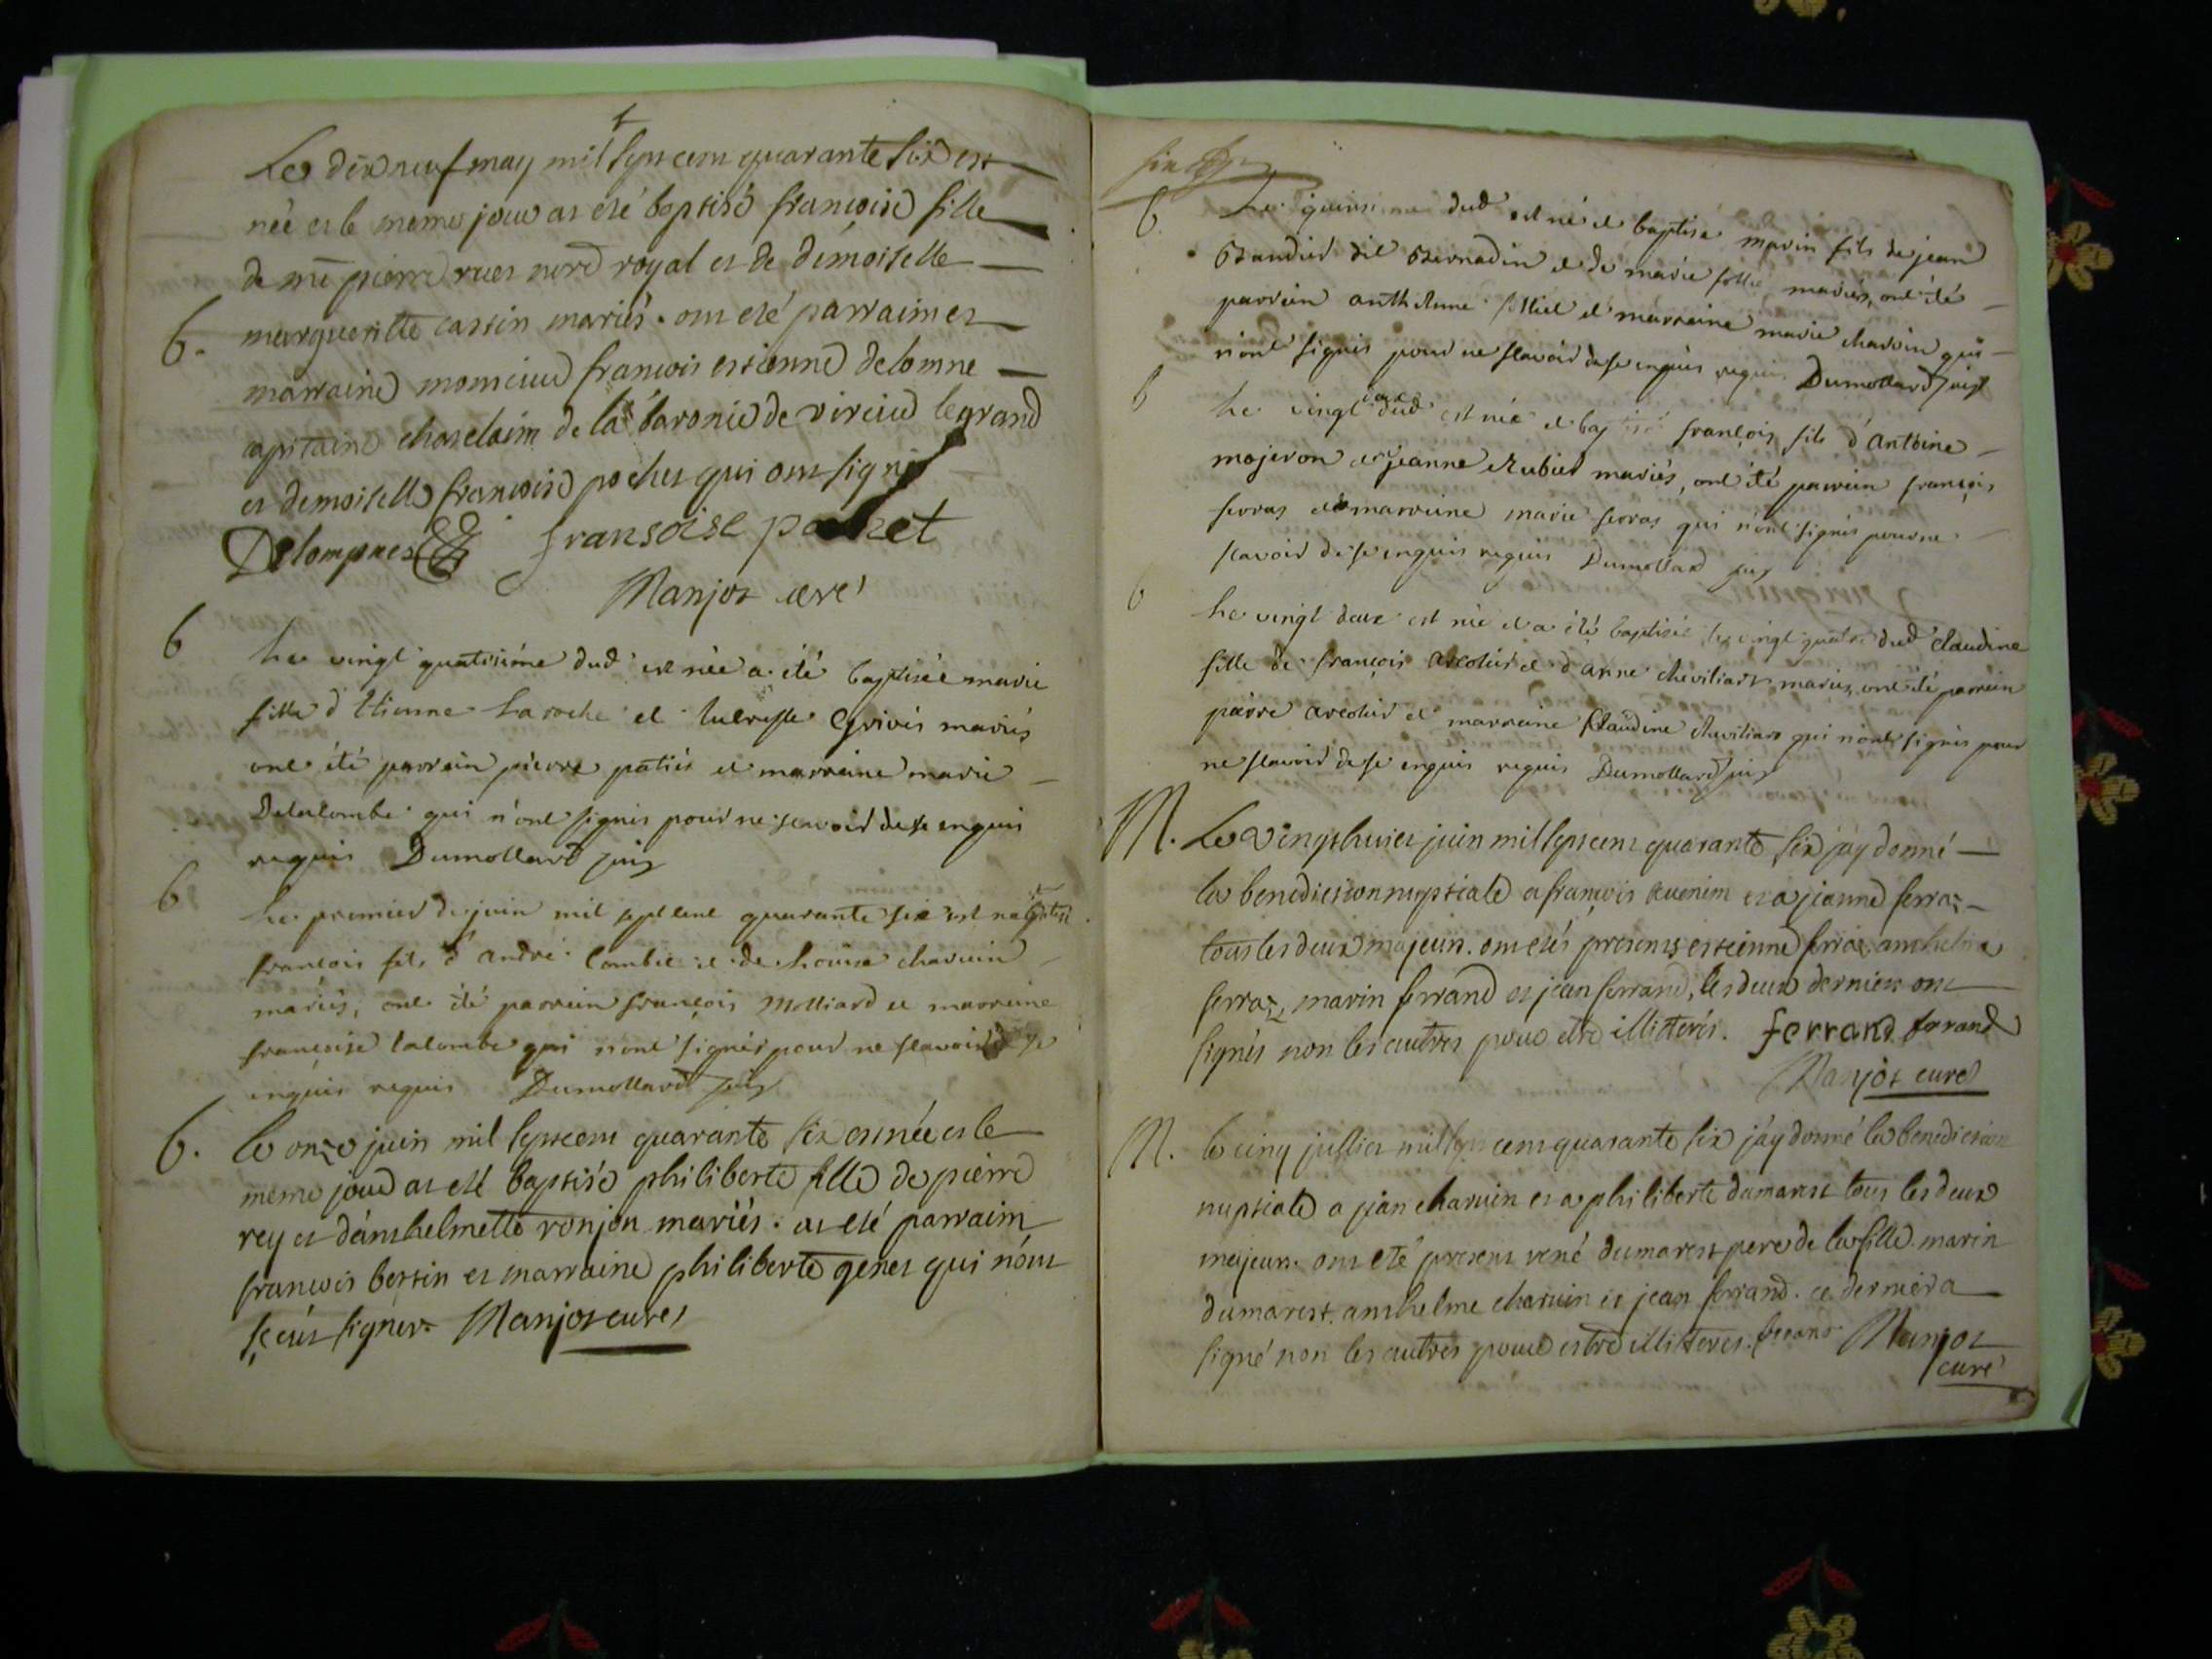 Le dix neuf may mil sept cent quarante six est
née et le meme jour at eté baptisé francoise fille
de me pierre ruet nore royal et de démoiselle
6. marguerilte cassin mariés. ont eté parraim et
marraine monsieur francois estienne delomne
capitaine chatelaim de la baronie de virieu le grand
et demoiselle francoise pochet qui ont signé
Delompnes fransoise pochet
Manjot curé
6 Le vingt quatrieme dud est née a été baptisée marie
fille d'Etienne Laroche et lucresse Grivés mariés
ont été parrain pierre patiér et marraine marie
Delalombe qui n'ont signés pour ne scavoir de se enquis
requis Dumollard
6 Le premier de juin mil sept cent quarante six est né baptisé
francois fils d'andré Combié et de Louise charvin
mariés, ont été parrein françois Molliard et marreine
francoise lalombe qui n'ont signés pour ne scavoir de se
enquis requis Dumollard
6. le onze juin mil sept cent quarante six est née et le
meme jour at eté baptisé philiberte fille de pierre
rey et d'anthelmette ronjon mariés. at eté parraim
francois bertin et marraine philiberte genet qui n'ont
sceut signer. Manjot curé
6. Le quinsieme dud est né et baptisé marin fils de jean
Baudier dit Bernadin et de marie mariés, ont été
parrein anthelme et marraine marie charvin qui
n'ont signés pour ne scavoir de se enquis requis Dumollard
6 Le vingt dud est née et baptisé françois fils d'Antoine
mojeron et jeanne Rubier mariés, ont été parrein françois
serras et marreine marie serras qui n'ont signés pour ne
scavoir de se enquis requis Dumollard
6 Le vingt deux est née et a été baptisée le vingt quatre dud Claudine
fille de françois et d'anne mariés, ont été parrein
pierre et marreine Claudine qui n'ont signés pour
ne scavoir de se enquis requis Dumollard
M. Le vingt huiet juin mil sept cent quarante six j'ay donné
la benediction nuptiale a françois et a jeanne serraz
tous les deux majeurs. ont etés presents estienne serraz anthelme
serraz, marin ferrand et jean ferrand, les deux derniers ont
signés non les autres pour etre illitterés. ferrand ferrand
Manjot curé
M. le cinq juillet mil sept cent quarante six j'ay donné la benediction
nuptiale a jean charvin et a philiberte dumarest tous les deux
majeurs. ont eté presens rené dumarest pere de la fille. marin
dumarest. anthelme charvin et jean ferrand. ce dernier a
signé non les autres pour estre illitteres. ferrand Manjot
curé